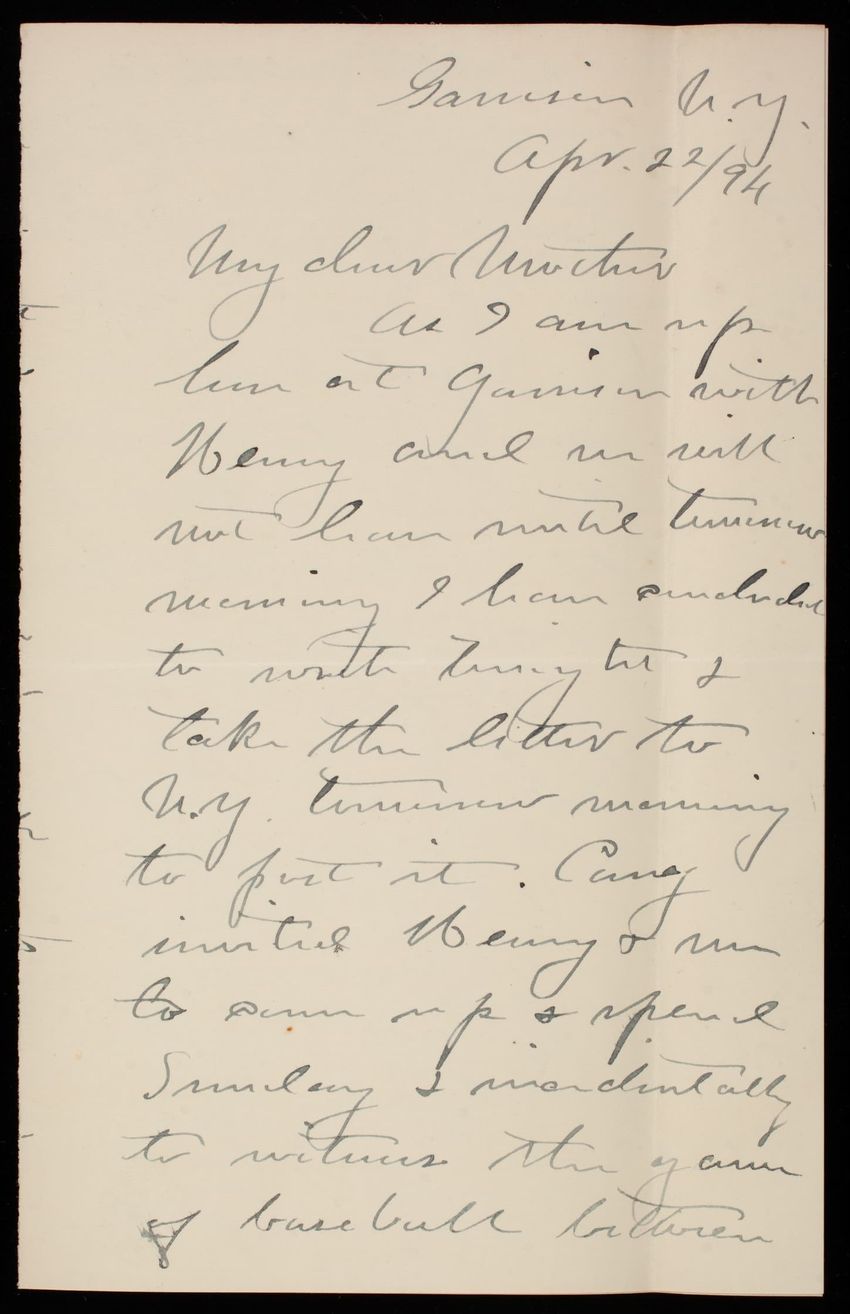 Garrison N.Y.
Apr. 22/94
My dear Mother
As I am up
here at Garrison with
Henry and we will
not leave until tomorrow
morning I have concluded
to write tonight &
take the letter to
N.Y. tomorrow morning
to post it. Cary
invited Henry & me
to come up & spend
Sunday & incidentally
to witness the game
of baseball between